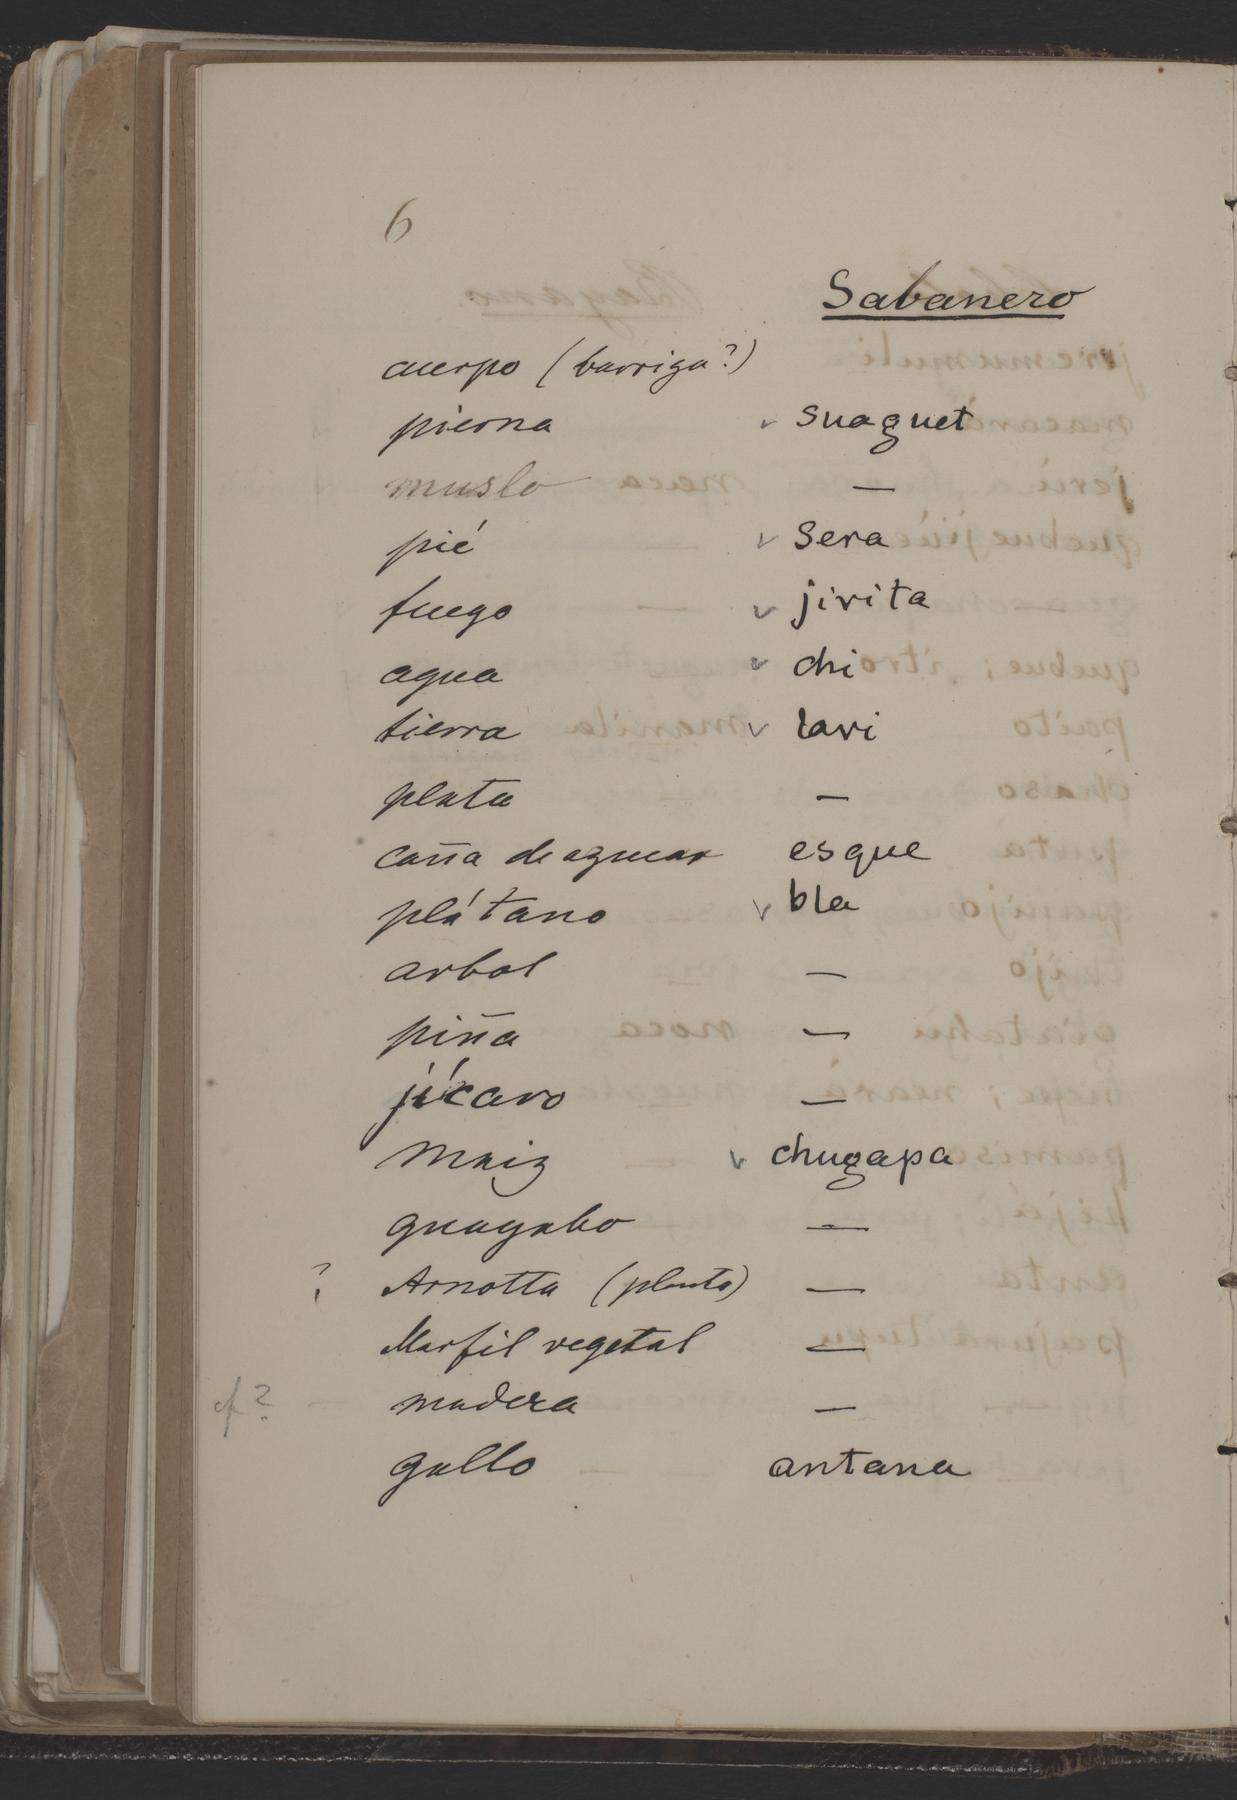 6
Sabanero
cuerpo (barriga?)
pierna ✓ suaguet
muslo —
pié ✓ sera
fuego ✓ jirita
agua ✓ chi
tierra ✓ tari
plata —
caña de azucar esque
plátano ✓ bla
arbol —
piña —
jícaro —
maiz ✓ chugapa
guayabo —
? Arnotta (planta) —
Marfil vegetal —
cf? madera —
gallo antana